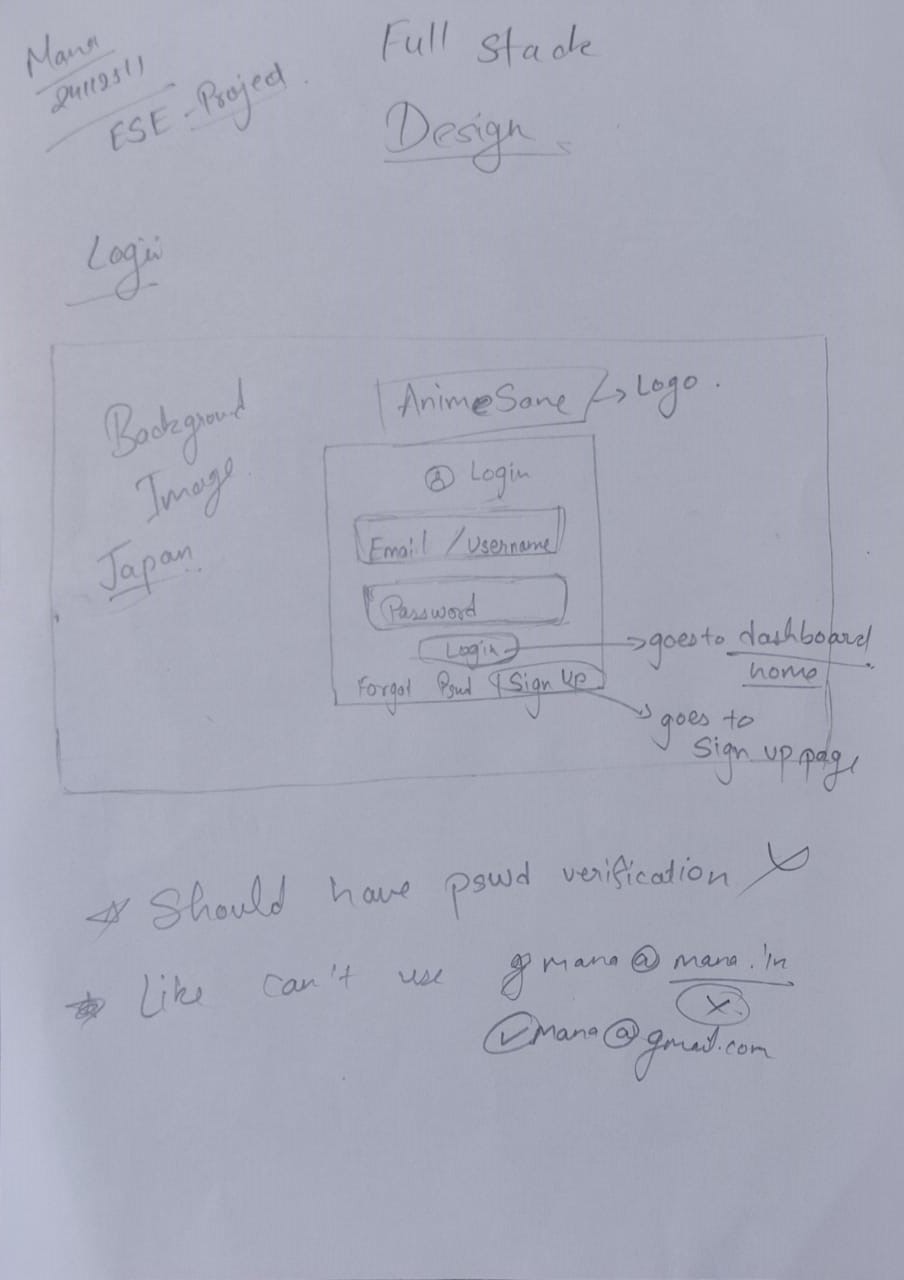 Mana
24112311
ESE - Project.
Full Stack
Design
Login
Background
Image
Japan
AnimeSane → Logo.
Login
Email / Username
Password
Login → goes to dashboard
home
Forgot Pswd Sign Up → goes to
Sign up page
Should have pswd verification
Like can't use mana@mana.in
X
✓ mana@gmail.com